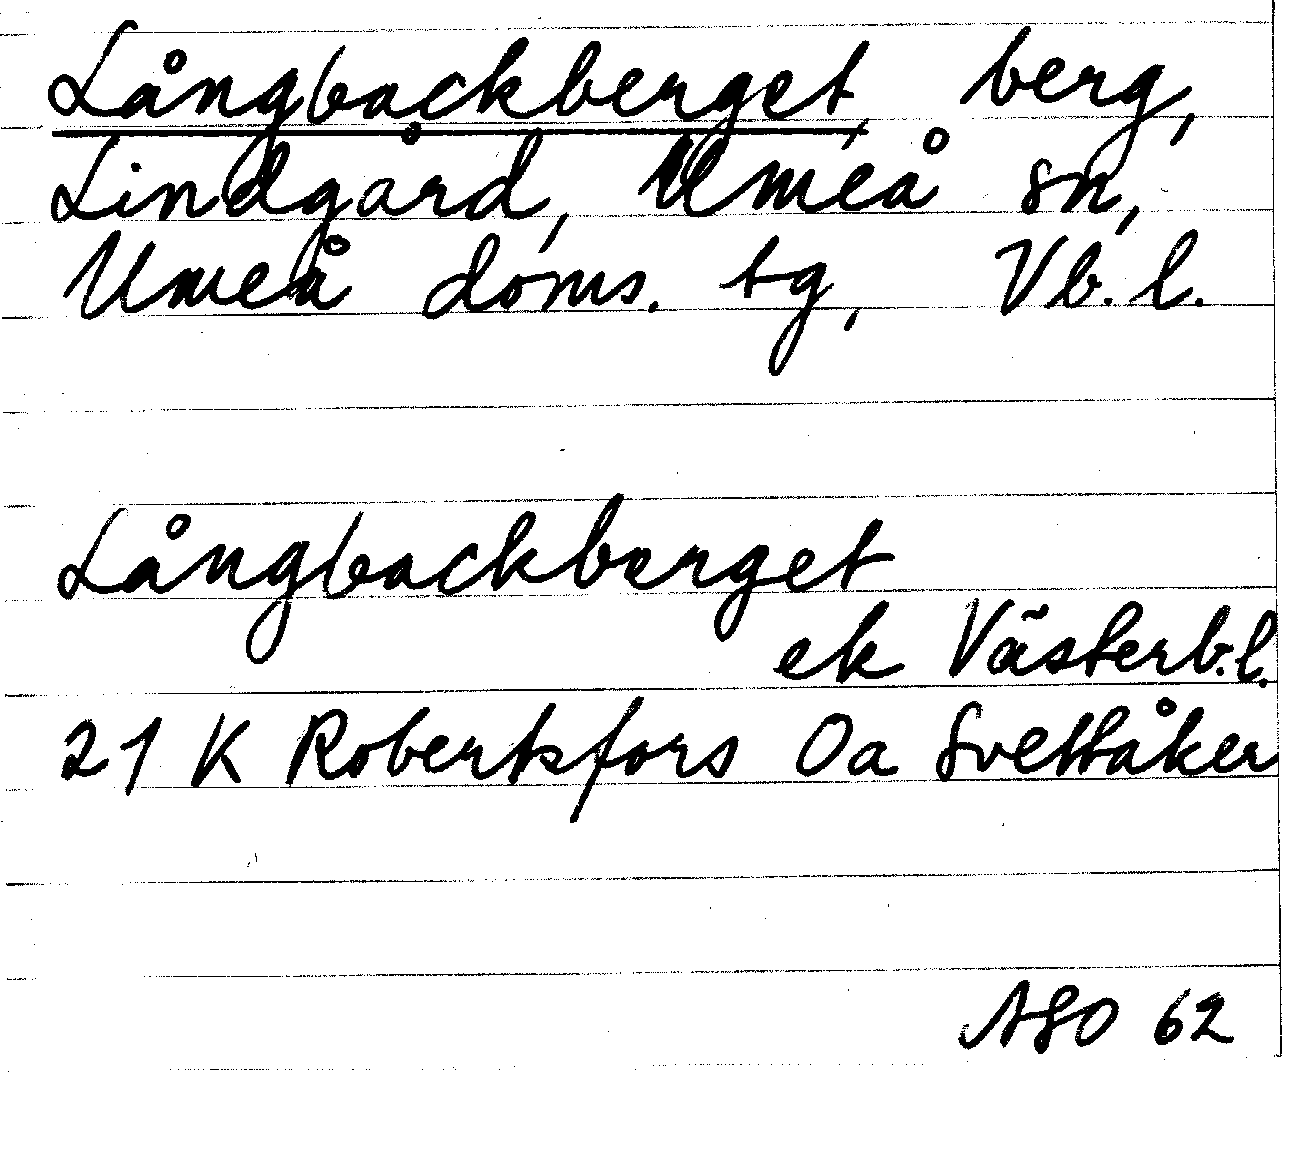 Långbackberget, berg,
Lindgård, Umeå sn,
Umeå doms. tg, Vb. l.
Långbackberget
ek Västerb.l.
21 K Robertsfors Oa Svettåker
ASO 62